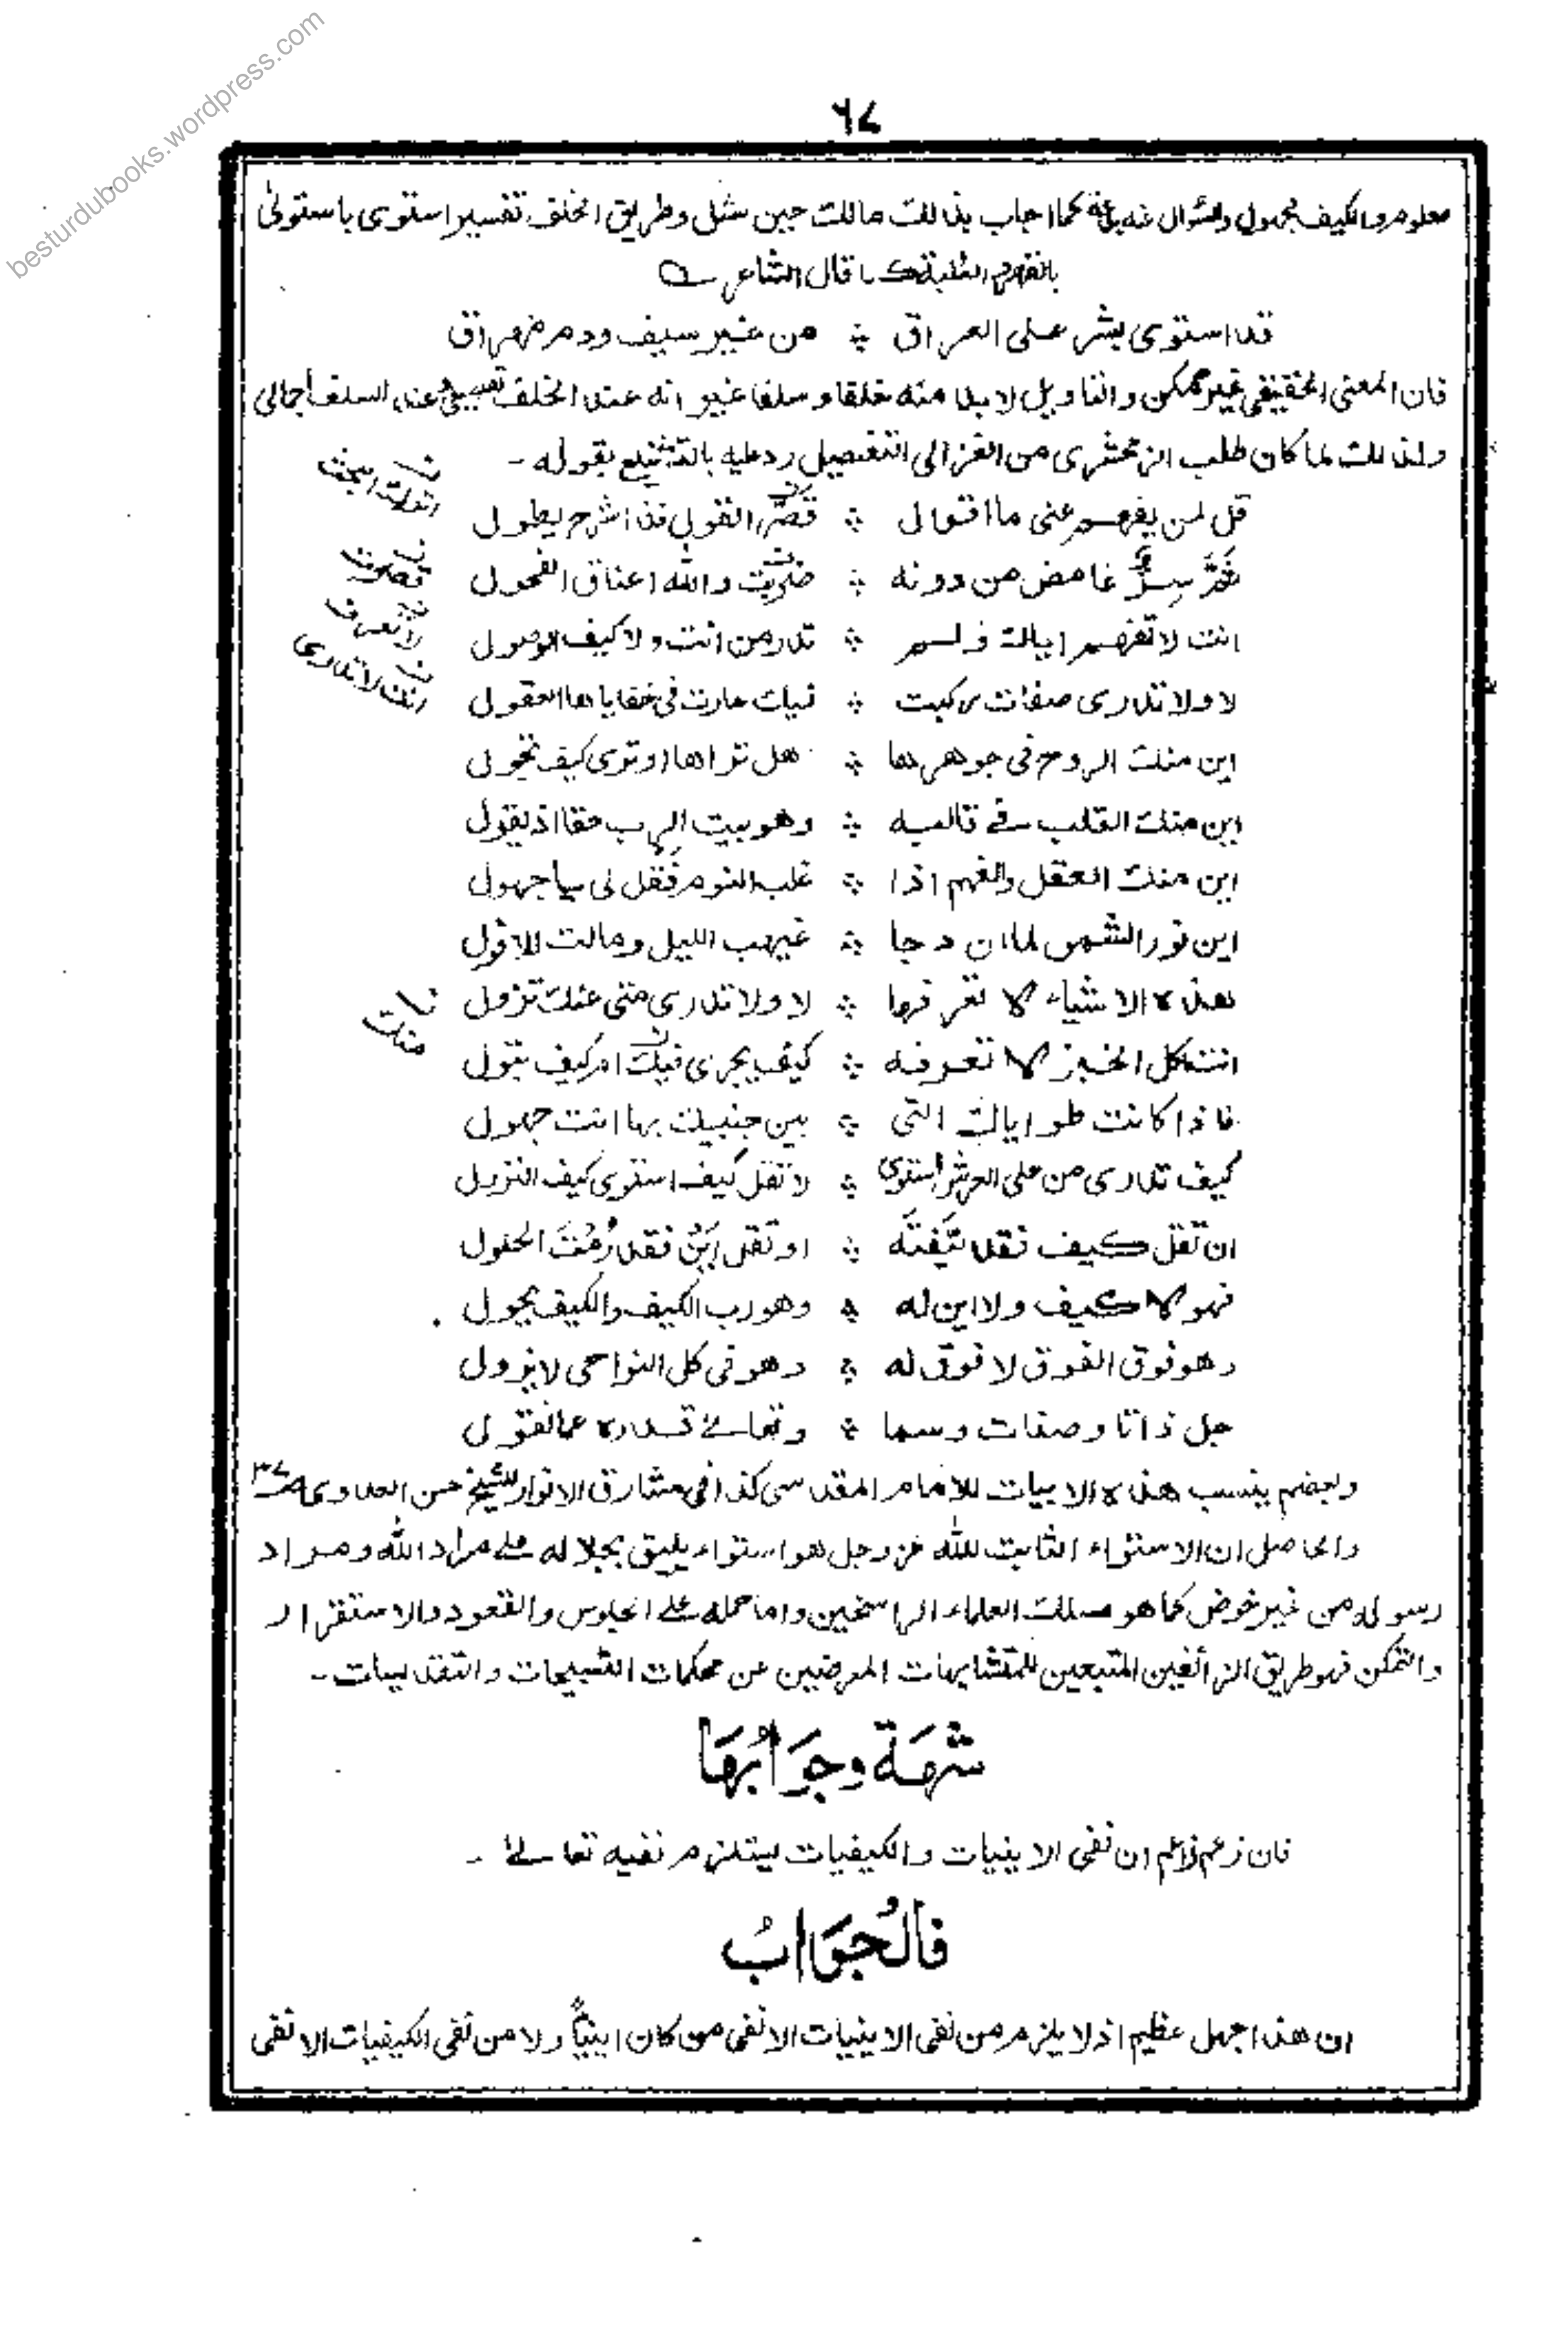 besturdubooks.wordpress.com
٦٧
معلوم والكيف مجهول والسؤال عنه بدعة كما اجاب بذالك مالك حين سئل وطريق الخلف تفسير استوى باستولىٰ
بالقهر والغلبة كما قال الشاعر
قد استوى بشر على العراق ÷ من غير سيف ودم مهراق
فان المعنى الحقيقي غير ممكن والتاويل لا بد منه خلفا وسلفا غير انه عند الخلف تفصيلي وعند السلف اجمالي
ولذالك لما كان طلب الزمخشرى من الغزالى التفصيل رد عليه بالتشنيع بقوله -
قل لمن يفهم عنى ما اقول ÷ قصّر القول فذا شرح يطول
ثَمَّ سِرٌّ غامض من دونه ÷ ضربت والله اعناق الفحول
انت لا تفهم اياك ولم ÷ تدر من انت ولا كيف الوصول
لا ولا تدرى صفات ركبت ÷ فيك حارت فى خفاياها العقول
اين منك الروح فى جوهرها ÷ هل تراها او ترى كيف تجول
اين منك القلب فى قالبه ÷ وهو بيت الرب حقا اذ يقول
اين منك العقل والفهم اذا ÷ غلب النوم فقل لى يا جهول
اين نور الشمس لما ان دجا ÷ غيهب الليل ومالت للافول
هذه الاشياء لا تعرفها ÷ لا ولا تدرى متى عنك تزول
انت اكل الخبز لا تعرفه ÷ كيف يجرى فيك ام كيف تبول
فاذا كانت طواياك التى ÷ بين جنبيك بها انت جهول
كيف تدرى من على العرش استوى ÷ لا تقل كيف استوى كيف النزول
ان تقل كيف فقد كيّفتَه ÷ او تقل اين فقد رُمْتَ الحلول
فهو لا كيف ولا اين له ÷ وهو رب الكيف والكيف يحول
وهو فوق الفوق لا فوق له ÷ وهو فى كل النواحى لا يزول
جل ذاتا وصفات وسما ÷ وتعالىٰ قدره عما نقول
اترك البحث
قصرت
لا تعرف
انت لا تدرى
منك
وبعضهم ينسب هذه الابيات للامام المقدسى كذا فى مشارق الانوار للشيخ حسن العدوى ص٣٧
والحاصل ان الاستواء الثابت لله عز وجل هو استواء يليق بجلاله على مراد الله ومراد
رسوله من غير خوض كما هو مسلك العلماء الراسخين واما حمله على الجلوس والقعود والاستقرار
والتمكن فهو طريق الزائغين المتبعين للمتشابهات المعرضين عن محكمات التسبيحات والتقديسات -
شبهَة وجَوَابُهَا
فان زعم زاعم ان نفى الاينيات والكيفيات يستلزم نفيه تعالىٰ -
فالْجوَابُ
ان هذا جهل عظيم اذ لا يلزم من نفى الاينيات الا نفى من كان اينيًّا ولا من نفى الكيفيات الا نفى